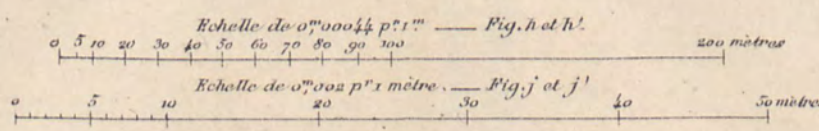 Echelle de 0,ᵐ00044 pʳ.1ᵐ. — Fig. h et h'.
0 5 10 20 30 40 50 60 70 80 90 100 200 mètres
Echelle de 0,ᵐ002 pʳ 1 mètre. — Fig. j et j'
0 5 10 20 30 40 50 mètres